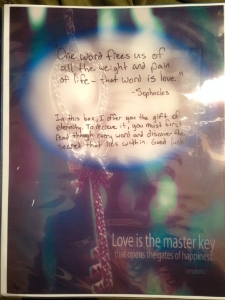 One word frees us of
all the weight and pain
of life - that word is love."
-Sophocles
In this box, I offer you the gift of
eternity. To recieve it, you must first
read through every word and discover the
secret that lies within. Good luck
Love is the master key
that opens the gates of happiness.